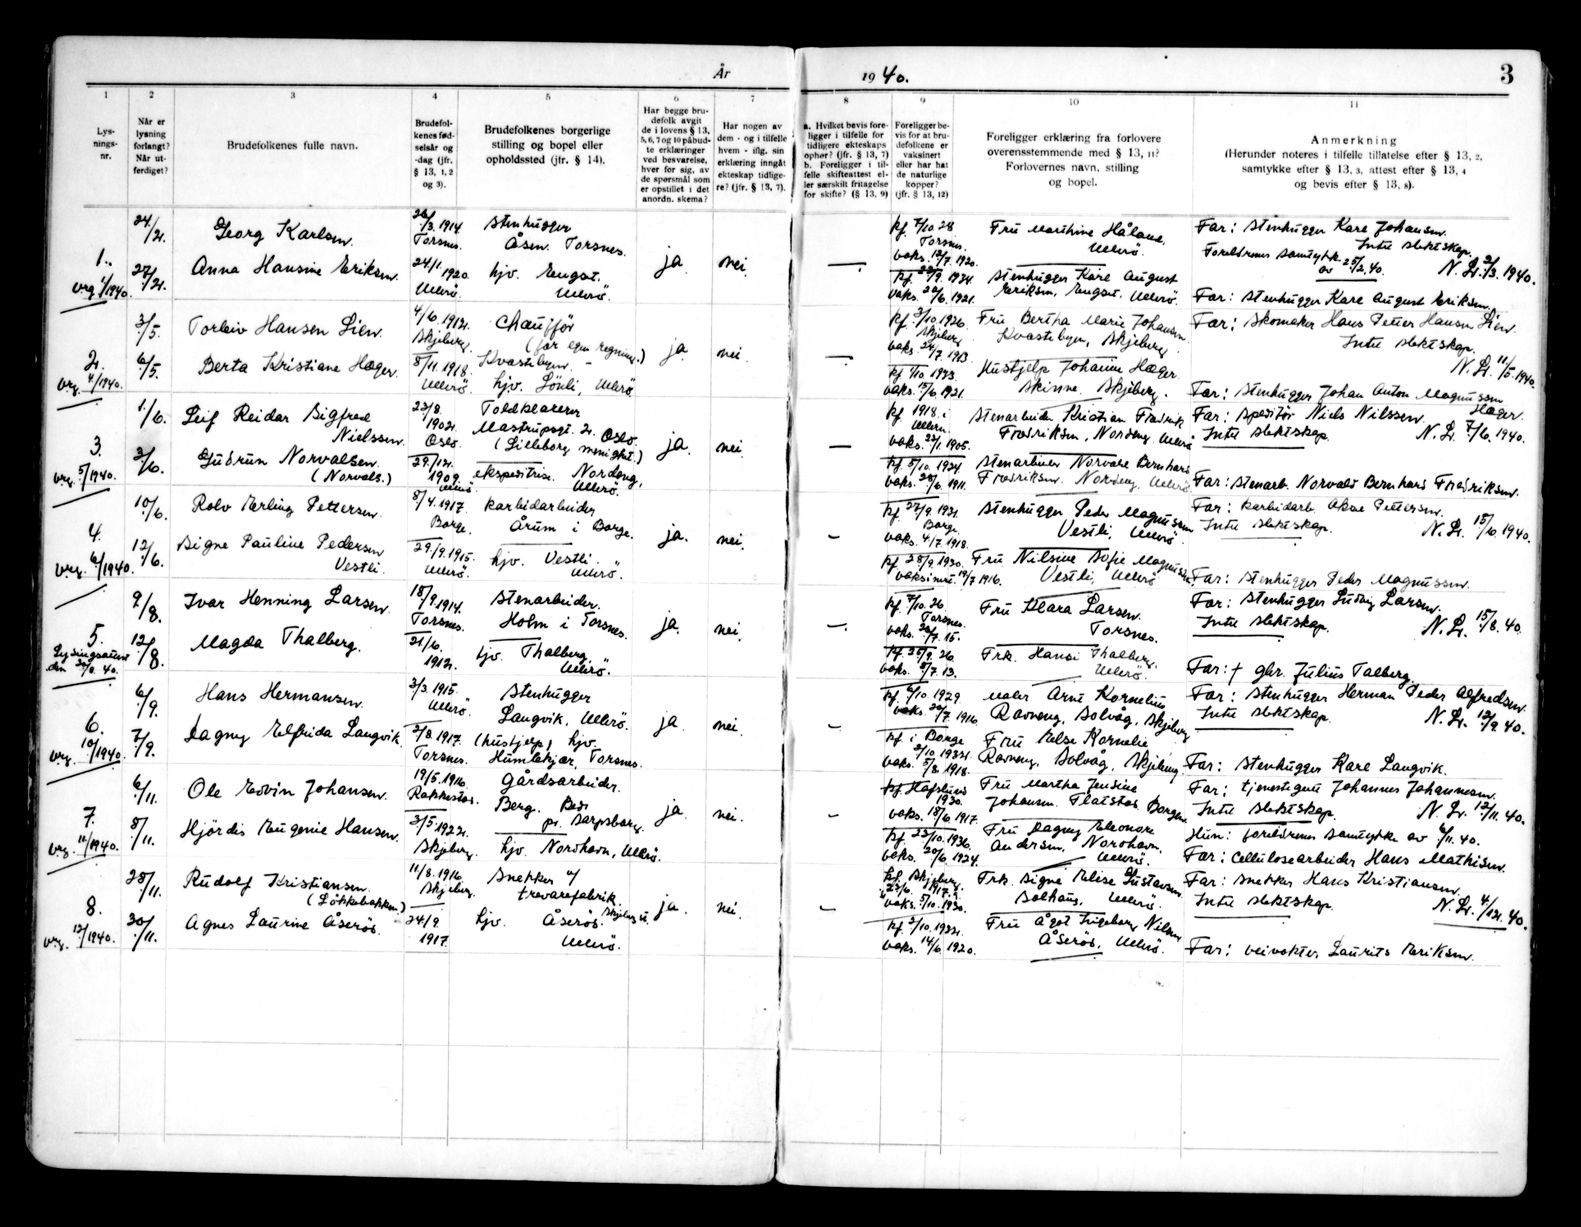 År 1940.
3
1 2 3 4 5 6 7 8 9 10 11
Lys-
nings-
nr.
Når er
lysning
forlangt?
Når ut-
ferdiget?
Brudefolkenes fulle navn.
Brudefol-
kenes fød-
selsår og
-dag (jfr.
§ 13, 1, 2
og 3).
Brudefolkenes borgerlige
stilling og bopel eller
opholdssted (jfr. § 14).
Har begge bru-
defolk avgit
de i lovens § 13,
5, 6, 7 og 10 påbud-
te erklæringer
ved besvarelse,
hver for sig, av
de spørsmål som
er opstillet i det
anordn. skema?
Har nogen av
dem - og i tilfelle
hvem - iflg. sin
erklæring inngått
ekteskap tidlige-
re? (jfr. § 13, 7).
a. Hvilket bevis fore-
ligger i tilfelle for
tidligere ekteskaps
ophør? (jfr. § 13, 7)
b. Foreligger i til-
felle skifteattest el-
ler særskilt fritagelse
for skifte? (§ 13, 9)
Foreligger be-
vis for at bru-
defolkene er
vaksinert
eller har hat
de naturlige
kopper?
(jfr. § 13, 12)
Foreligger erklæring fra forlovere
overensstemmende med § 13, 11?
Forlovernes navn, stilling
og bopel.
Anmerkning
(Herunder noteres i tilfelle tillatelse efter § 13, 2,
samtykke efter § 13, 3, attest efter § 13, 4
og bevis efter § 13, 8).
1.
24/2.
Georg Karlsen.
26/3. 1914
Torsnes.
Stenhugger
Åsen. Torsnes.
ja.
nei.
—
kf. 7/10 28
Torsnes.
vaks. 12/7. 1920.
Fru Marthine Håland,
Ullerö.
Far: Stenhugger Kare Johansen.
Intet slektskap.
Foreldrenes samtykke
av 25/2. 40.
N. L. 2/3. 1940.
vrg. 1/1940.
27/2.
Anna Hansine Eriksen.
24/1. 1920.
Ullerö.
hjv. Engst.
Ullerö.
vaks. 20/6. 1921.
Stenhugger Kare August
Eriksen, Engst, Ullerö.
Far: Stenhugger Kare August Eriksen.
2.
3/5.
Torleiv Hansen Lien.
4/6. 1912.
Skjeberg.
Chauffør
(for egen regning.)
Kvastebyen.
ja
nei.
—
kf. 3/10. 1926.
Skjeberg
vaks 24/7. 1913.
Fru Bertha Marie Johansen
Kvastebyen, Skjeberg.
Far: Skomaker Hans Petter Hansen Lien.
Intet slektskap.
N. L. 11/5. 1940.
vrg. 4/1940.
6/5.
Berta Kristiane Hæger.
8/11. 1918.
Ullerö
hjv. Lönli, Ullerö
kf. 1/10. 1933
vaks. 15/6. 1921.
Hustjelp Johanne Hæger.
Skinne. Skjeberg.
Far: Stenhugger Johan Anton Magnussen
Hæger.
3.
1/6.
Leif Reidar Sigfred
Nielssen.
23/8.
1902.
Oslo.
Toldklarerer
Mastrupsgt. 2. Oslo.
(Lilleborg menighet.)
ja.
nei.
—
kf 1918 i
Ullern.
vaks. 23/1. 1905.
Stenarbeider Kristian Fredrik
Fredriksen, Nordeng, Ullerö
Far: Speditør Niels Nilssen.
Intet slektskap.
N. L. 7/6. 1940.
vrg. 5/1940.
3/6.
Gudrun Norvalsen.
(Norvals.)
29./12.
1909.
Ullerö.
ekspeditrise. Nordeng,
Ullerö.
kf. 5/10. 1924.
vaks. 20/6. 1911.
Stenarbeider Norvald Bernhard
Fredriksen. Nordeng, Ullerö
Far: Stenarb. Norvald Bernhard Fredriksen.
4.
10/6.
Rolv Erling Pettersen.
8/4. 1917.
Borge.
Karbidarbeider
Årum i Borge.
ja.
nei.
—
kf. 27/9. 1931
Borge
vaks. 4/7 1918.
Stenhugger Peder Magnussen
Vestli, Ullerö.
Far: Karbidarb. Aksel Pettersen.
Intet slektskap.
N. L. 15/6. 1940.
vrg. 6/1940.
12/6.
Signe Pauline Pedersen
Vestli.
29./9. 1915.
Ullerö.
hjv. Vestli.
Ullerö.
kf. 28/9. 1930.
vaksinert. 19/7 1916.
Fru Nilsine Sofie Magnussen
Vestli, Ullerö
Far: Stenhugger Peder Magnussen.
5.
9/8.
Ivar Henning Larsen.
18/9. 1914.
Torsnes.
Stenarbeider.
Holm i Torsnes.
ja.
nei.
—.
kf. 7/10. 26.
Torsnes.
vaks. 20/7. 15.
Fru Klara Larsen.
Torsnes.
Far: Stenhugger Ludvig Larsen.
Intet slektskap.
N. L. 15/8. 40.
Lysningsattest
den 20/8. 40.
12/8.
Magda Thalberg.
21/6.
1912.
hjv. Thalberg
Ullerö.
kf. 25/9. 26
vaks. 5/7. 13.
Frk. Hansi Thalberg.
Ullerö.
Far: † gbr. Julius Talberg.
6.
6/9.
Hans Hermansen.
3/3. 1915.
Ullerö.
Stenhugger
Langvik, Ullerö.
ja
nei.
—
kf. 6/10. 1929
vaks. 20/7. 1916.
Maler Arne Kornelius
Ravneng, Solvåg, Skjeberg
Far: Stenhugger Herman Peder Alfredsen.
Intet slektskap.
N. L. 12/9. 40.
vrg. 10/1940.
7/9.
Dagny Elfrida Langvik.
2/8. 1917.
Torsnes.
(hustjelp) hjv.
Humlekjær, Torsnes.
kf. i Borge
2/10. 1932.
vaks. 5/8. 1918.
Fru Else Kornelie
Ravneng, Solvåg, Skjeberg.
Far: Stenhugger Kare Langvik.
7.
6/11.
Ole Edvin Johansen.
19/5. 1916.
Rakkestad.
Gårdsarbeider.
Berg.
pr. Sarpsborg.
ja.
nei.
—
1930.
vaks. 18/6. 1917.
Fru Martha Jensine
Johansen. Flatstad Borgen
Far: tjenestegutt Johannes Johannesen.
Intet slektskap.
N. L. 12/11. 40.
vrg. 11/1940.
8/11.
Hjördis Eugenie Hansen.
3/5. 1922.
Skjeberg.
hjv. Nordhavn, Ullerö.
kf. 25/10. 1936.
vaks. 20/6. 1924.
Fru Dagny Eleonore
Andersen. Nordhavn.
Ullerö.
Hun: foreldrenes samtykke av 6/11. 40.
Far: Cellulosearbeider Hans Mathisen.
8.
28/11.
Rudolf Kristiansen.
(Løkkebakken)
11/8. 1916
Skjeberg.
Snekker v/
trevarefabrik.
ja.
nei.
—
kf. Skjeberg.
vaks. 5/10. 1930.
Frk. Signe Elise Gustavsen
Solhaug, Ullerö.
Far: Snekker Hans Kristiansen.
Intet slektskap.
N. L. 4/12. 40.
vrg. 12/1940.
30/11.
Agnes Laurine Åserös.
24/9.
1917.
hjv. Åserös.
Ullerö.
kf. 2/10. 1932.
vaks. 14/6. 1920.
Fru Ågot Ingeborg Nilsen
Åserös, Ullerö.
Far: veivokter Laurits Eriksen.